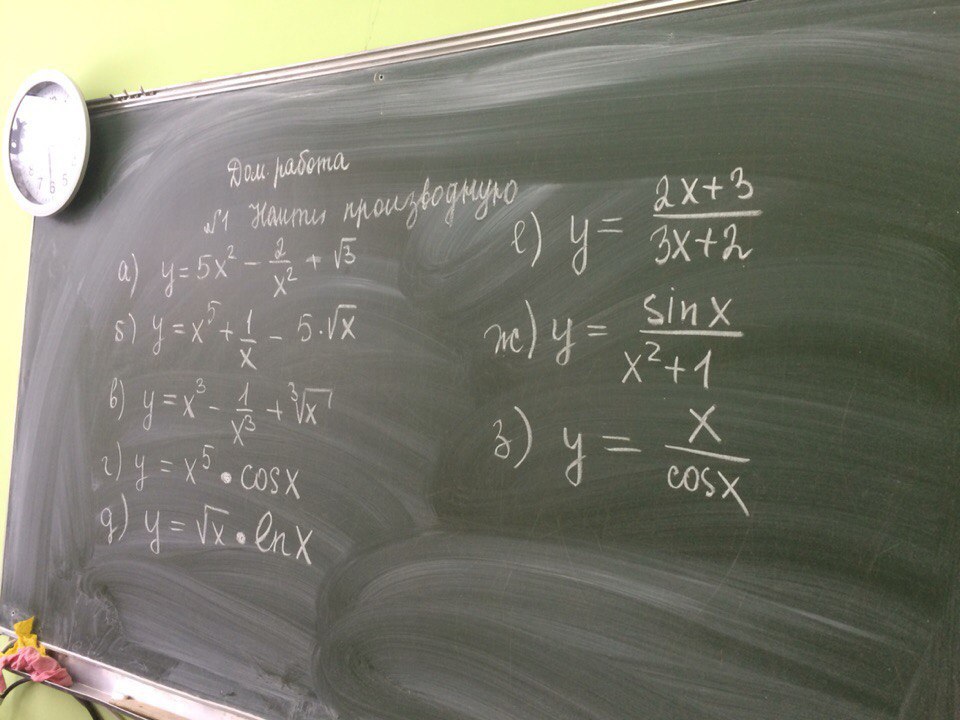 Дом. работа
№1 Найти производную
а) y = 5x² − 2/x² + √3
б) y = x⁵ + 1/x − 5·√x
в) y = x³ − 1/x³ + ∛x
г) y = x⁵ • cosx
д) y = √x • lnx
е) y = (2x+3)/(3x+2)
ж) y = sinx/(x²+1)
з) y = x/cosx
7 6 5